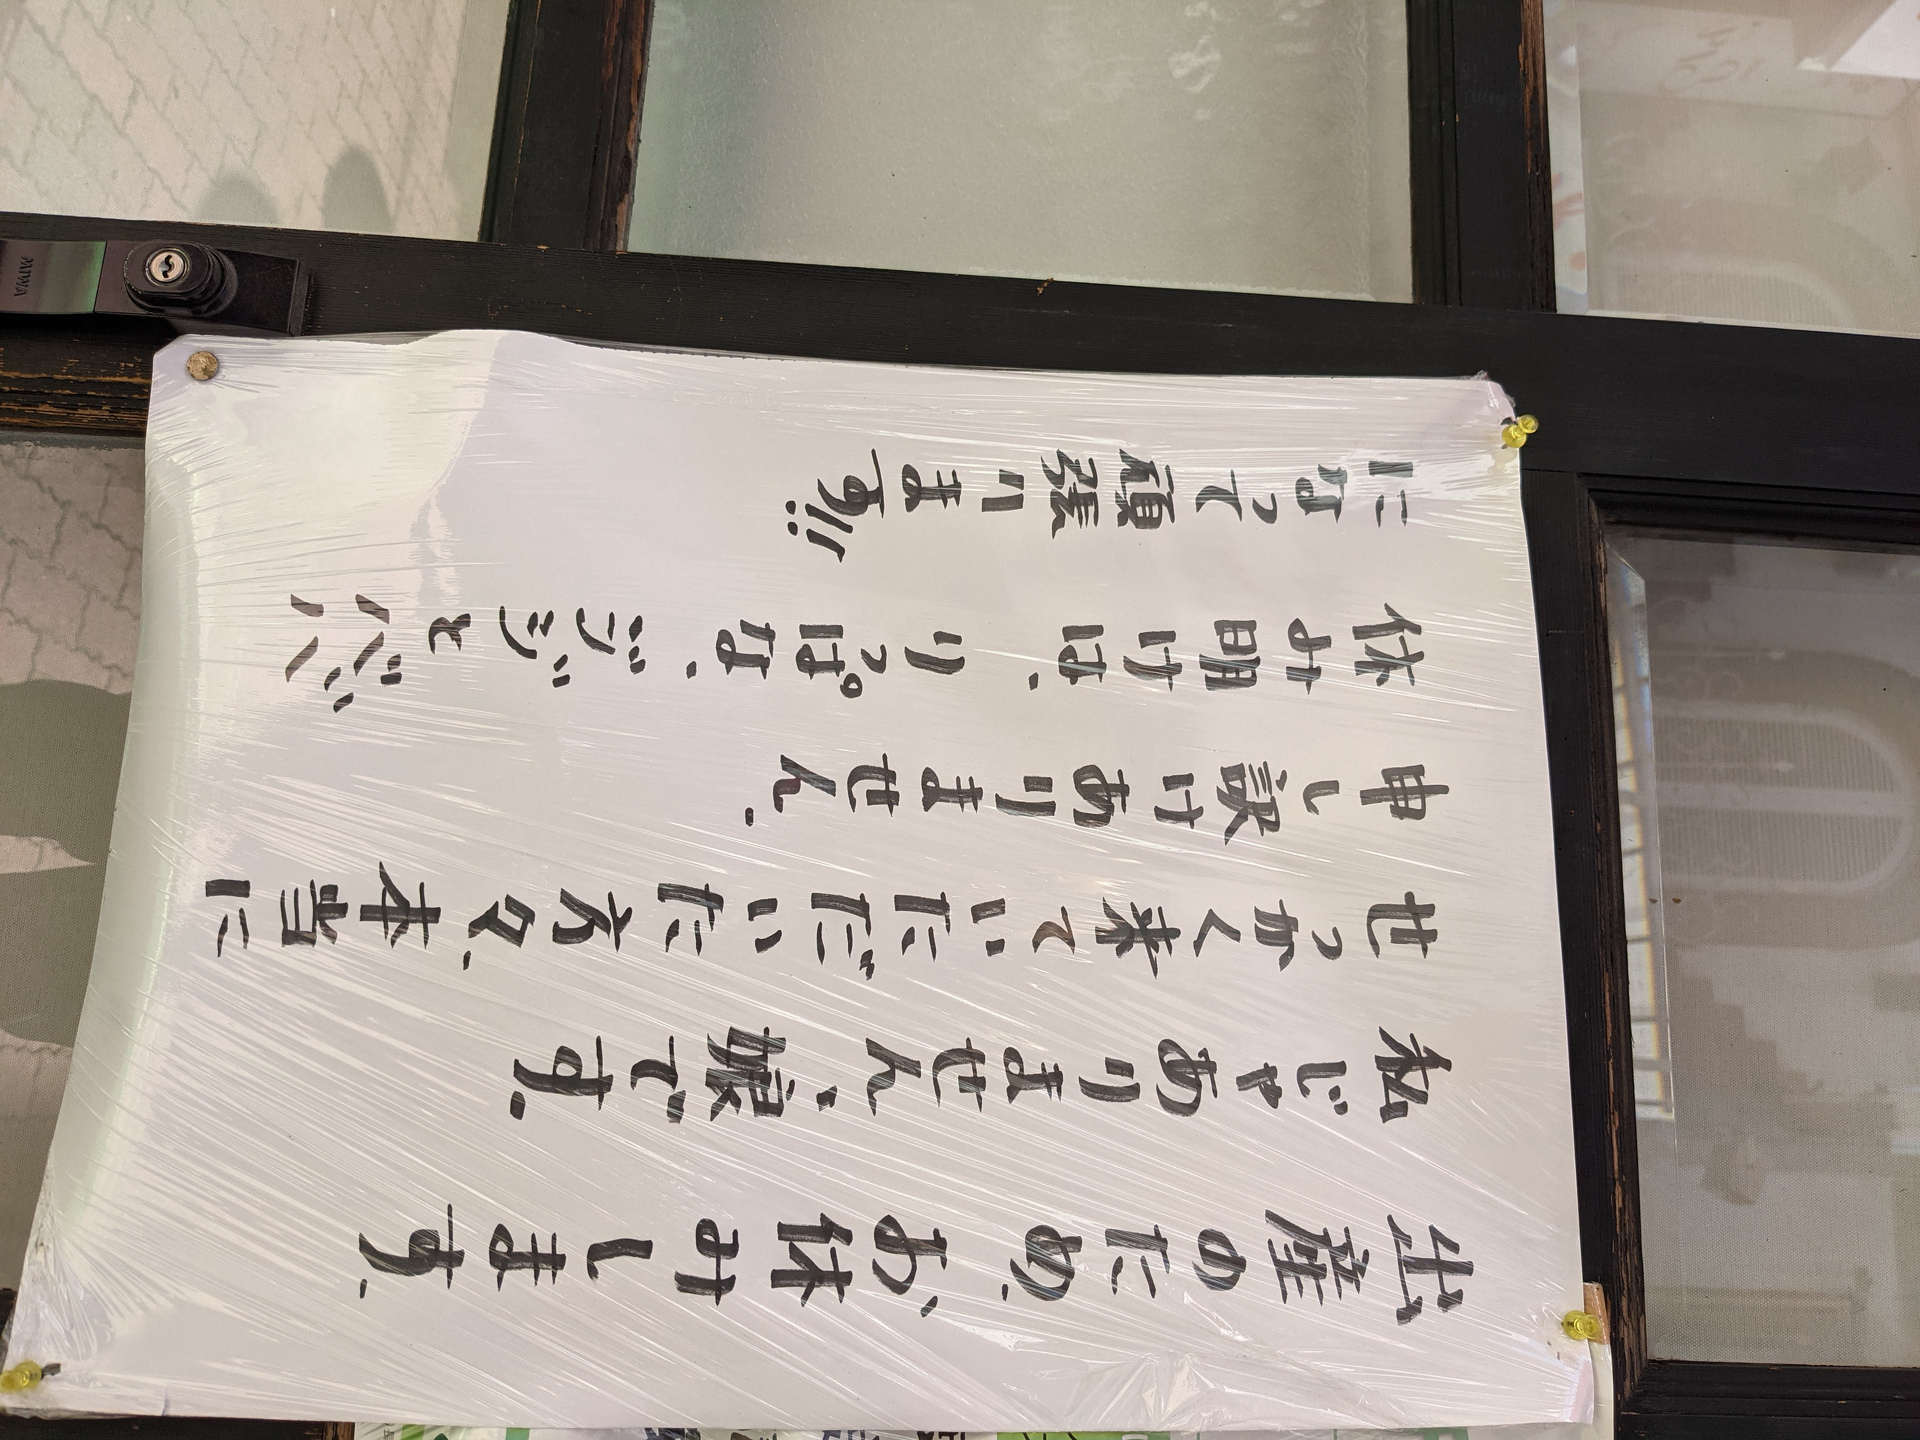 出産のため、お休みします。
私じゃありません、娘です。
せっかく来ていただいた方々、本当に
申し訳けありません。
休み明けは、りっぱな、ジジとババ
になって頑張ります!!
MIWA